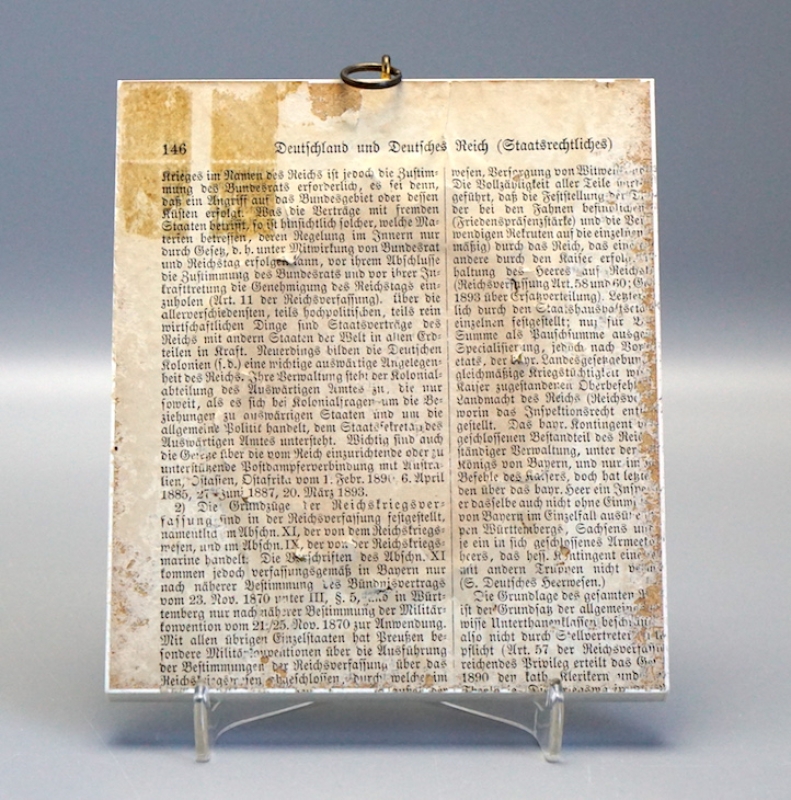 146 Deutſchland und Deutſches Reich (Staatsrechtliches)
Krieges im Namen des Reichs iſt jedoch die Zuſtim-
mung des Bundesrats erforderlich, es ſei denn,
daß ein Angriff auf das Bundesgebiet oder deſſen
Küſten erfolgt. Was die Verträge mit fremden
Staaten betrifft, ſo iſt hinſichtlich ſolcher, welche Ma-
terien betreffen, deren Regelung im Innern nur
durch Geſetz, d. h. unter Mitwirkung von Bundesrat
und Reichstag erfolgen kann, vor ihrem Abſchluſſe
die Zuſtimmung des Bundesrats und vor ihrer In-
krafttretung die Genehmigung des Reichstags ein-
zuholen (Art. 11 der Reichsverfaſſung). Über die
allerverſchiedenſten, teils hochpolitiſchen, teils rein
wirtſchaftlichen Dinge ſind Staatsverträge des
Reichs mit andern Staaten der Welt in allen Erd-
teilen in Kraft. Neuerdings bilden die Deutſchen
Kolonien (ſ. d.) eine wichtige auswärtige Angelegen-
heit des Reichs. Ihre Verwaltung ſteht der Kolonial-
abteilung des Auswärtigen Amtes zu, die nur
ſoweit, als es ſich bei Kolonialfragen um die Be-
ziehungen zu auswärtigen Staaten und um die
allgemeine Politik handelt, dem Staatsſekretär des
Auswärtigen Amtes unterſteht. Wichtig ſind auch
die Geſetze über die vom Reich einzurichtende oder zu
unterſtützende Poſtdampferverbindung mit Auſtra-
lien, Oſtaſien, Oſtafrika vom 1. Febr. 6. April
1885, 27. Juni 1887, 20. März 1893.
2) Die Grundzüge der Reichskriegsver-
faſſung ſind in der Reichsverfaſſung feſtgeſtellt,
namentlich im Abſchn. XI, der von dem Reichskriegs-
weſen, und im Abſchn. IX, der von der Reichskriegs-
marine handelt. Die Vorſchriften des Abſchn. XI
kommen jedoch verfaſſungsgemäß in Bayern nur
nach näherer Beſtimmung des Bündnisvertrags
vom 23. Nov. 1870 unter III, §. 5, und in Würt-
temberg nur nach näherer Beſtimmung der Militär-
konvention vom 21./25. Nov. 1870 zur Anwendung.
Mit allen übrigen Einzelſtaaten hat Preußen be-
ſondere Militärkonventionen über die Ausführung
der Beſtimmungen der Reichsverfaſſung über das
Reichskriegsweſen abgeſchloſſen, durch welche im
weſen, Verſorgung von Witwen
Die Vollzähligkeit aller Teile wird
geführt, daß die Feſtſtellung der
der bei den Fahnen befindlichen
(Friedenspräſenzſtärke) und die
wendigen Rekruten auf die einzelnen
mäßig) durch das Reich, das eine
andere durch den Kaiſer erfolgt
haltung des Heeres auf
(Reichsverfaſſung Art. 58 und 60;
1893 über Erſatzverteilung).
lich durch den
einzelnen feſtgeſtellt; nur für
Summe als Pauſchſumme
Specialiſierung, jedoch nach
etats, der bayr. Landesgeſetzgebung
gleichmäßige Kriegstüchtigkeit
Kaiſer zugeſtandenen
Landmacht des Reichs
worin das Inſpektionsrecht
geſtellt. Das bayr. Kontingent
geſchloſſenen Beſtandteil des
ſtändiger Verwaltung, unter der
Königs von Bayern, und nur im
Befehle des Kaiſers, doch hat
den über das bayr. Heer ein
er dasſelbe auch nicht ohne
von Bayern im Einzelfall
pen Württembergs, Sachſens
je ein in ſich geſchloſſenes
heers, das heſſ. Kontingent
mit andern Truppen nicht
(S. Deutſches Heerweſen.)
Die Grundlage des geſamten
iſt der Grundſatz der allgemeinen
wiſſe Unterthanenklaſſen
alſo nicht durch Stellvertreter
pflicht (Art. 57 der Reichsverfaſſung
reichendes Privileg erteilt das
1890 den kath. Klerikern und